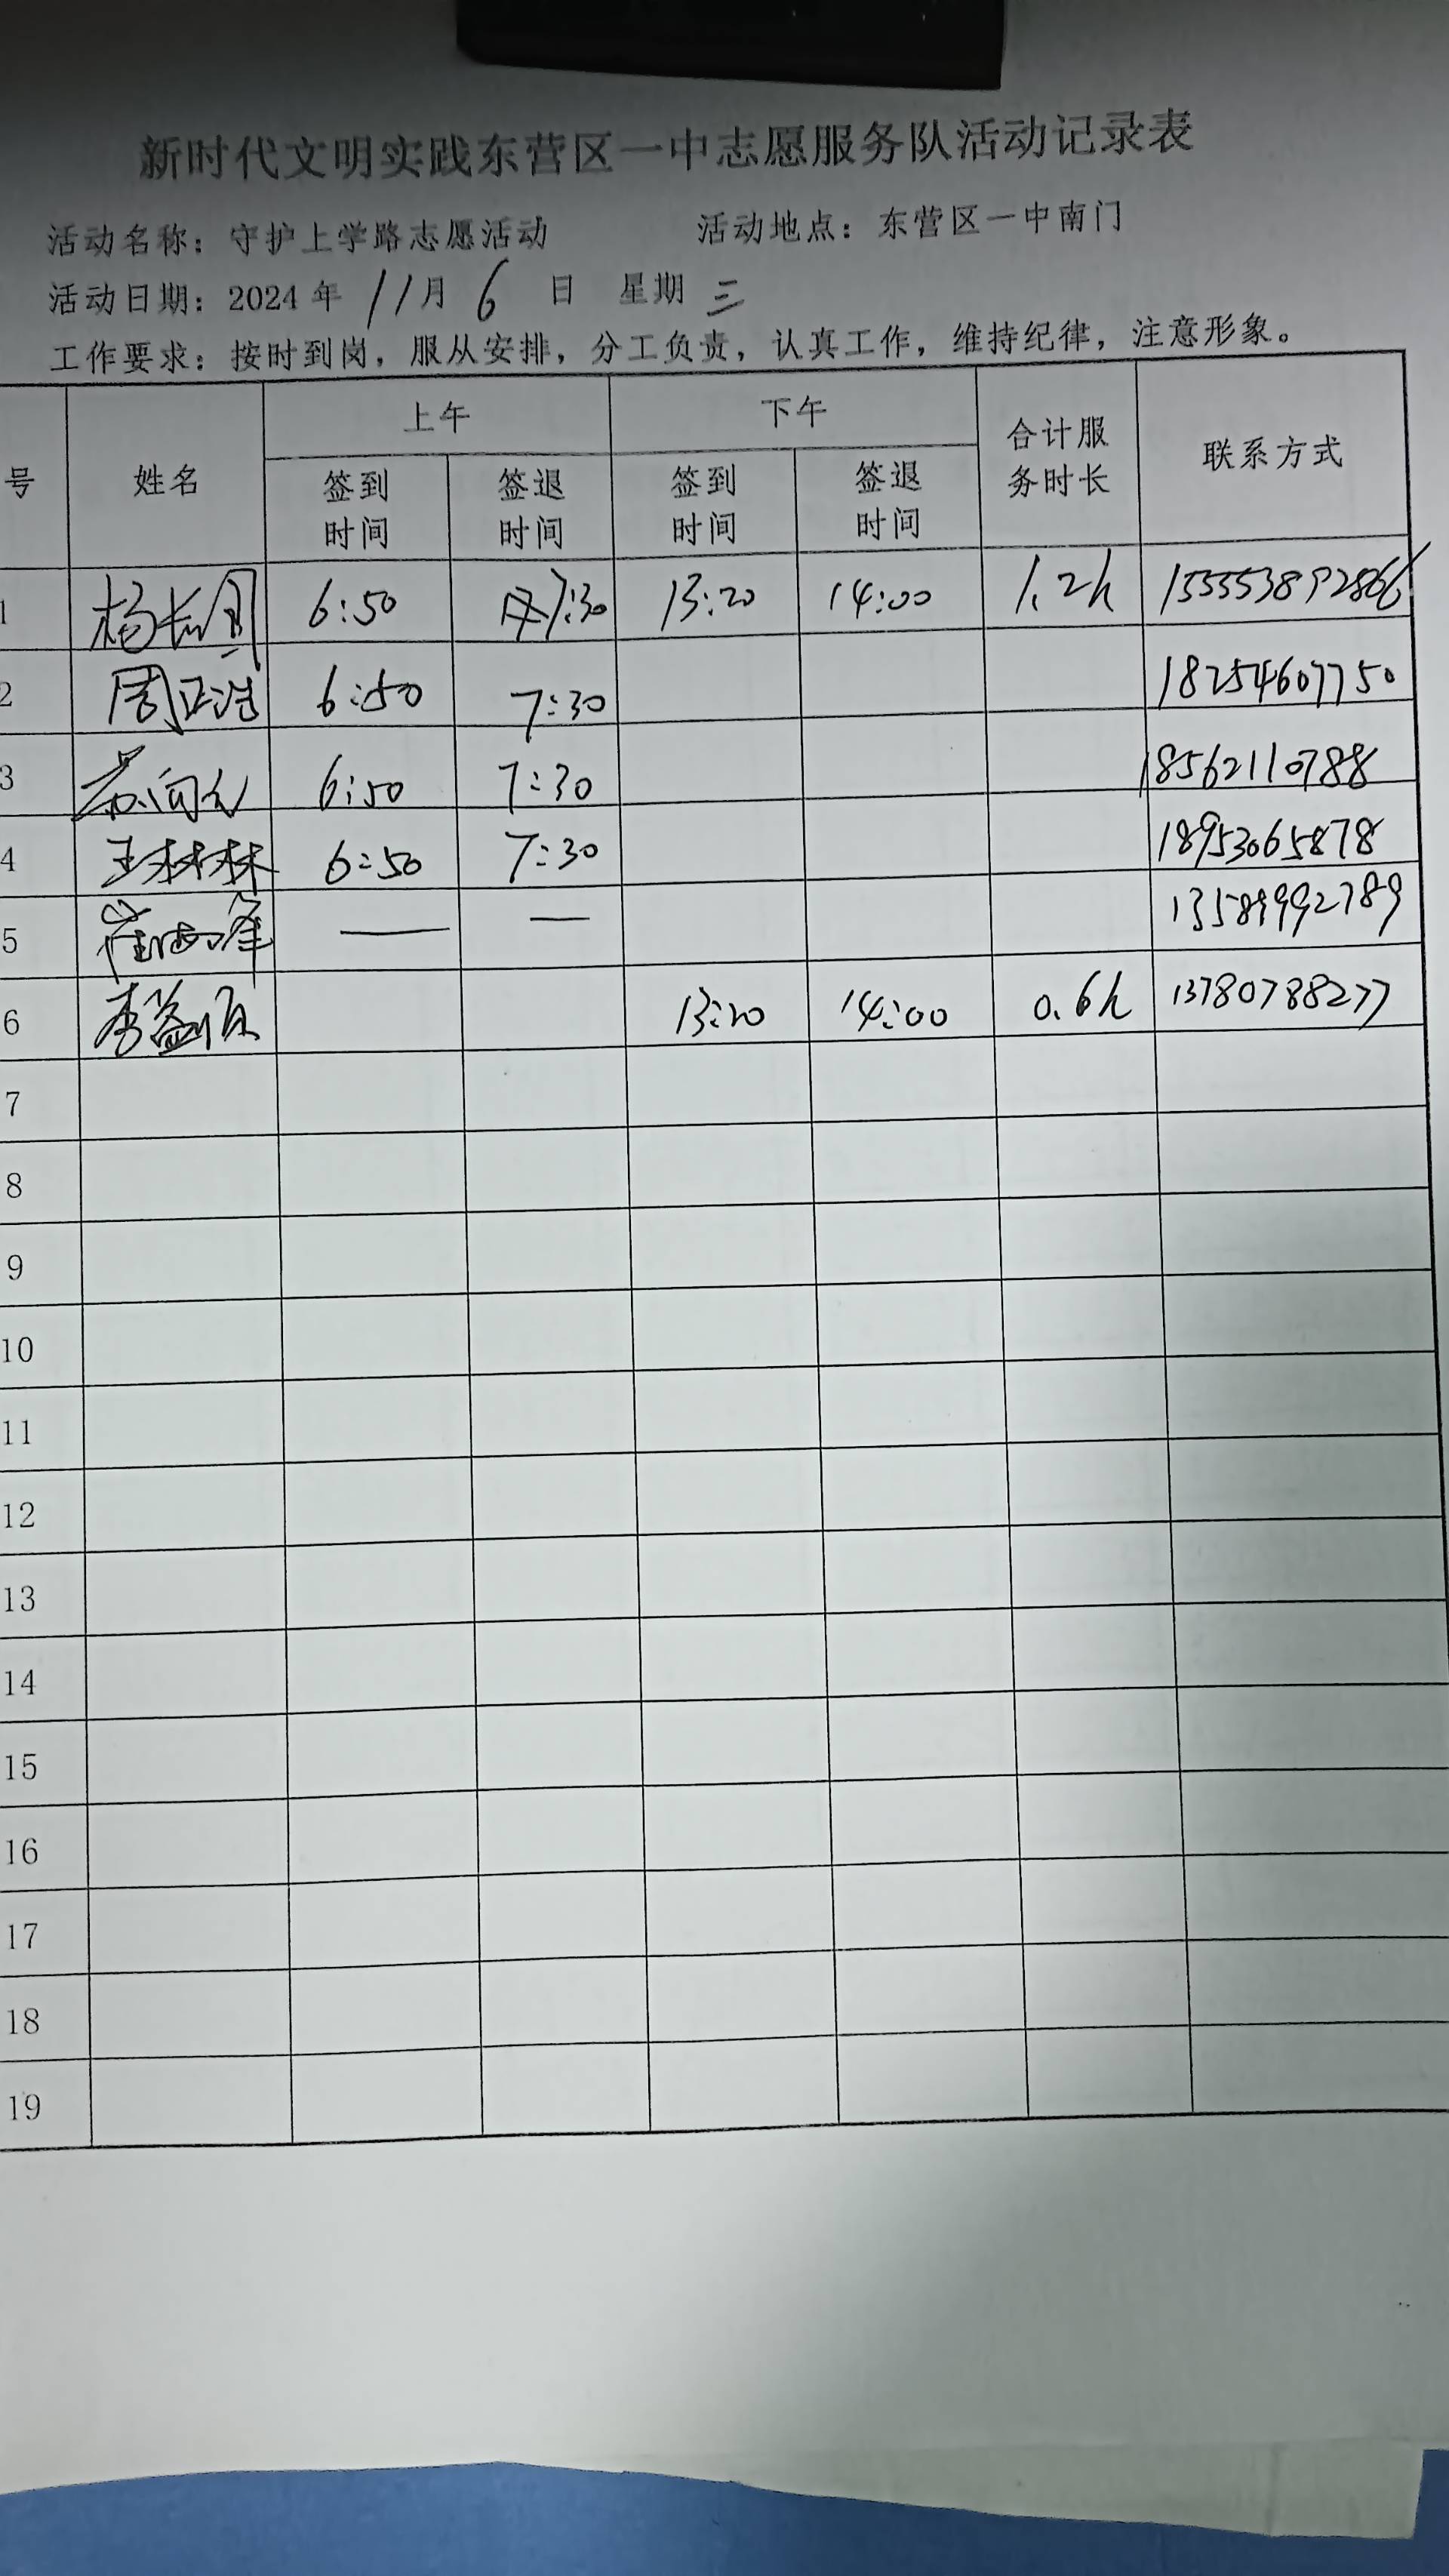 新时代文明实践东营区一中志愿服务队活动记录表
活动名称：守护上学路志愿活动 活动地点：东营区一中南门
活动日期：2024年 11月 6 日 星期 三
工作要求：按时到岗，服从安排，分工负责，认真工作，维持纪律，注意形象。
号 姓名 上午 下午 合计服务时长 联系方式
签到时间 签退时间 签到时间 签退时间
1 杨 6:50 7:30 13:20 14:00 1.2h
2 周正浩 6:50 7:30 18254607750
3 6:50 7:30 18562110788
4 王林林 6:50 7:30 18953065878
5 崔 — — 13589992789
6 李益 13:20 14:00 0.6h 13780788277
7
8
9
10
11
12
13
14
15
16
17
18
19